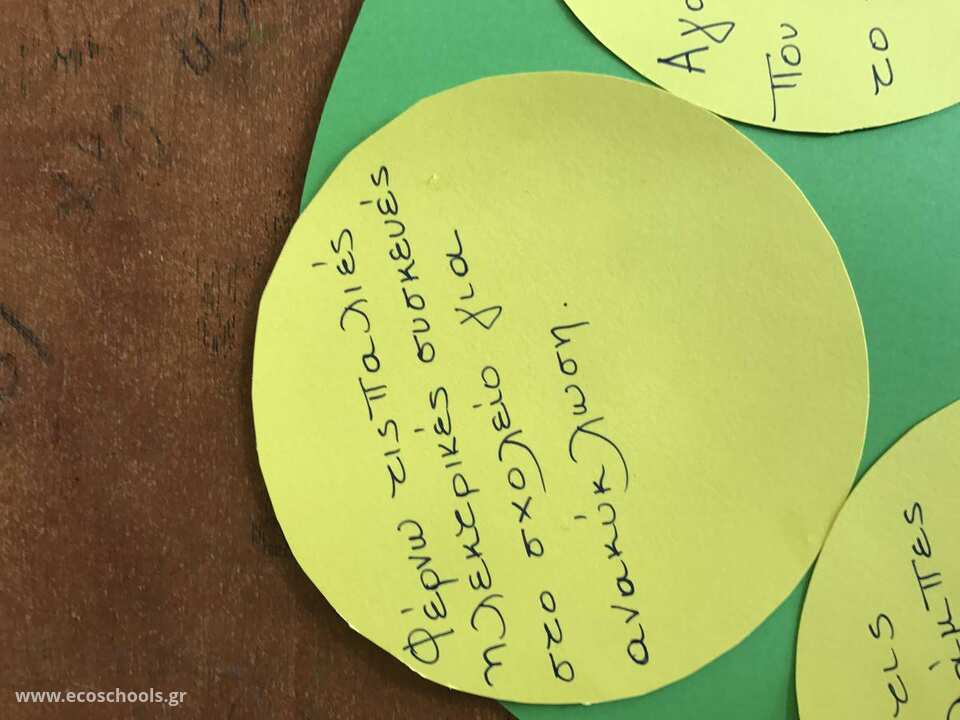 Φέρνω τις παλιές
ηλεκτρικές συσκευές
στο σχολείο για
ανακύκλωση.
Αγο
που
το
τις
www.ecoschools.gr